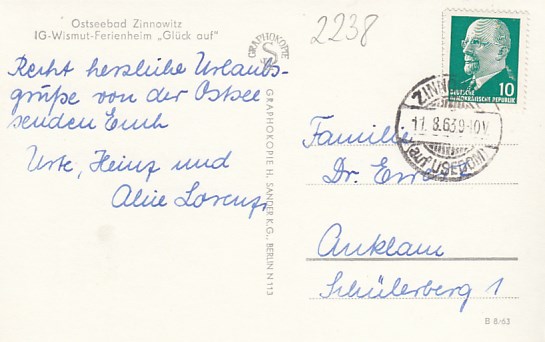 Ostseebad Zinnowitz
IG-Wismut-Ferienheim „Glück auf"
2238
Recht herzliche Urlaubs-
grüße von der Ostsee
senden Euch
Urte, Heinz und
Alice Lorenz
GRAPHOKOPIE
GRAPHOKOPIE H. SANDER K.G., BERLIN N 113
10
DEUTSCHE
DEMOKRATISCHE REPUBLIK
11.8.63
auf USEDOM
Familie
Dr.
Anklam
Schülerberg 1
B 8/63